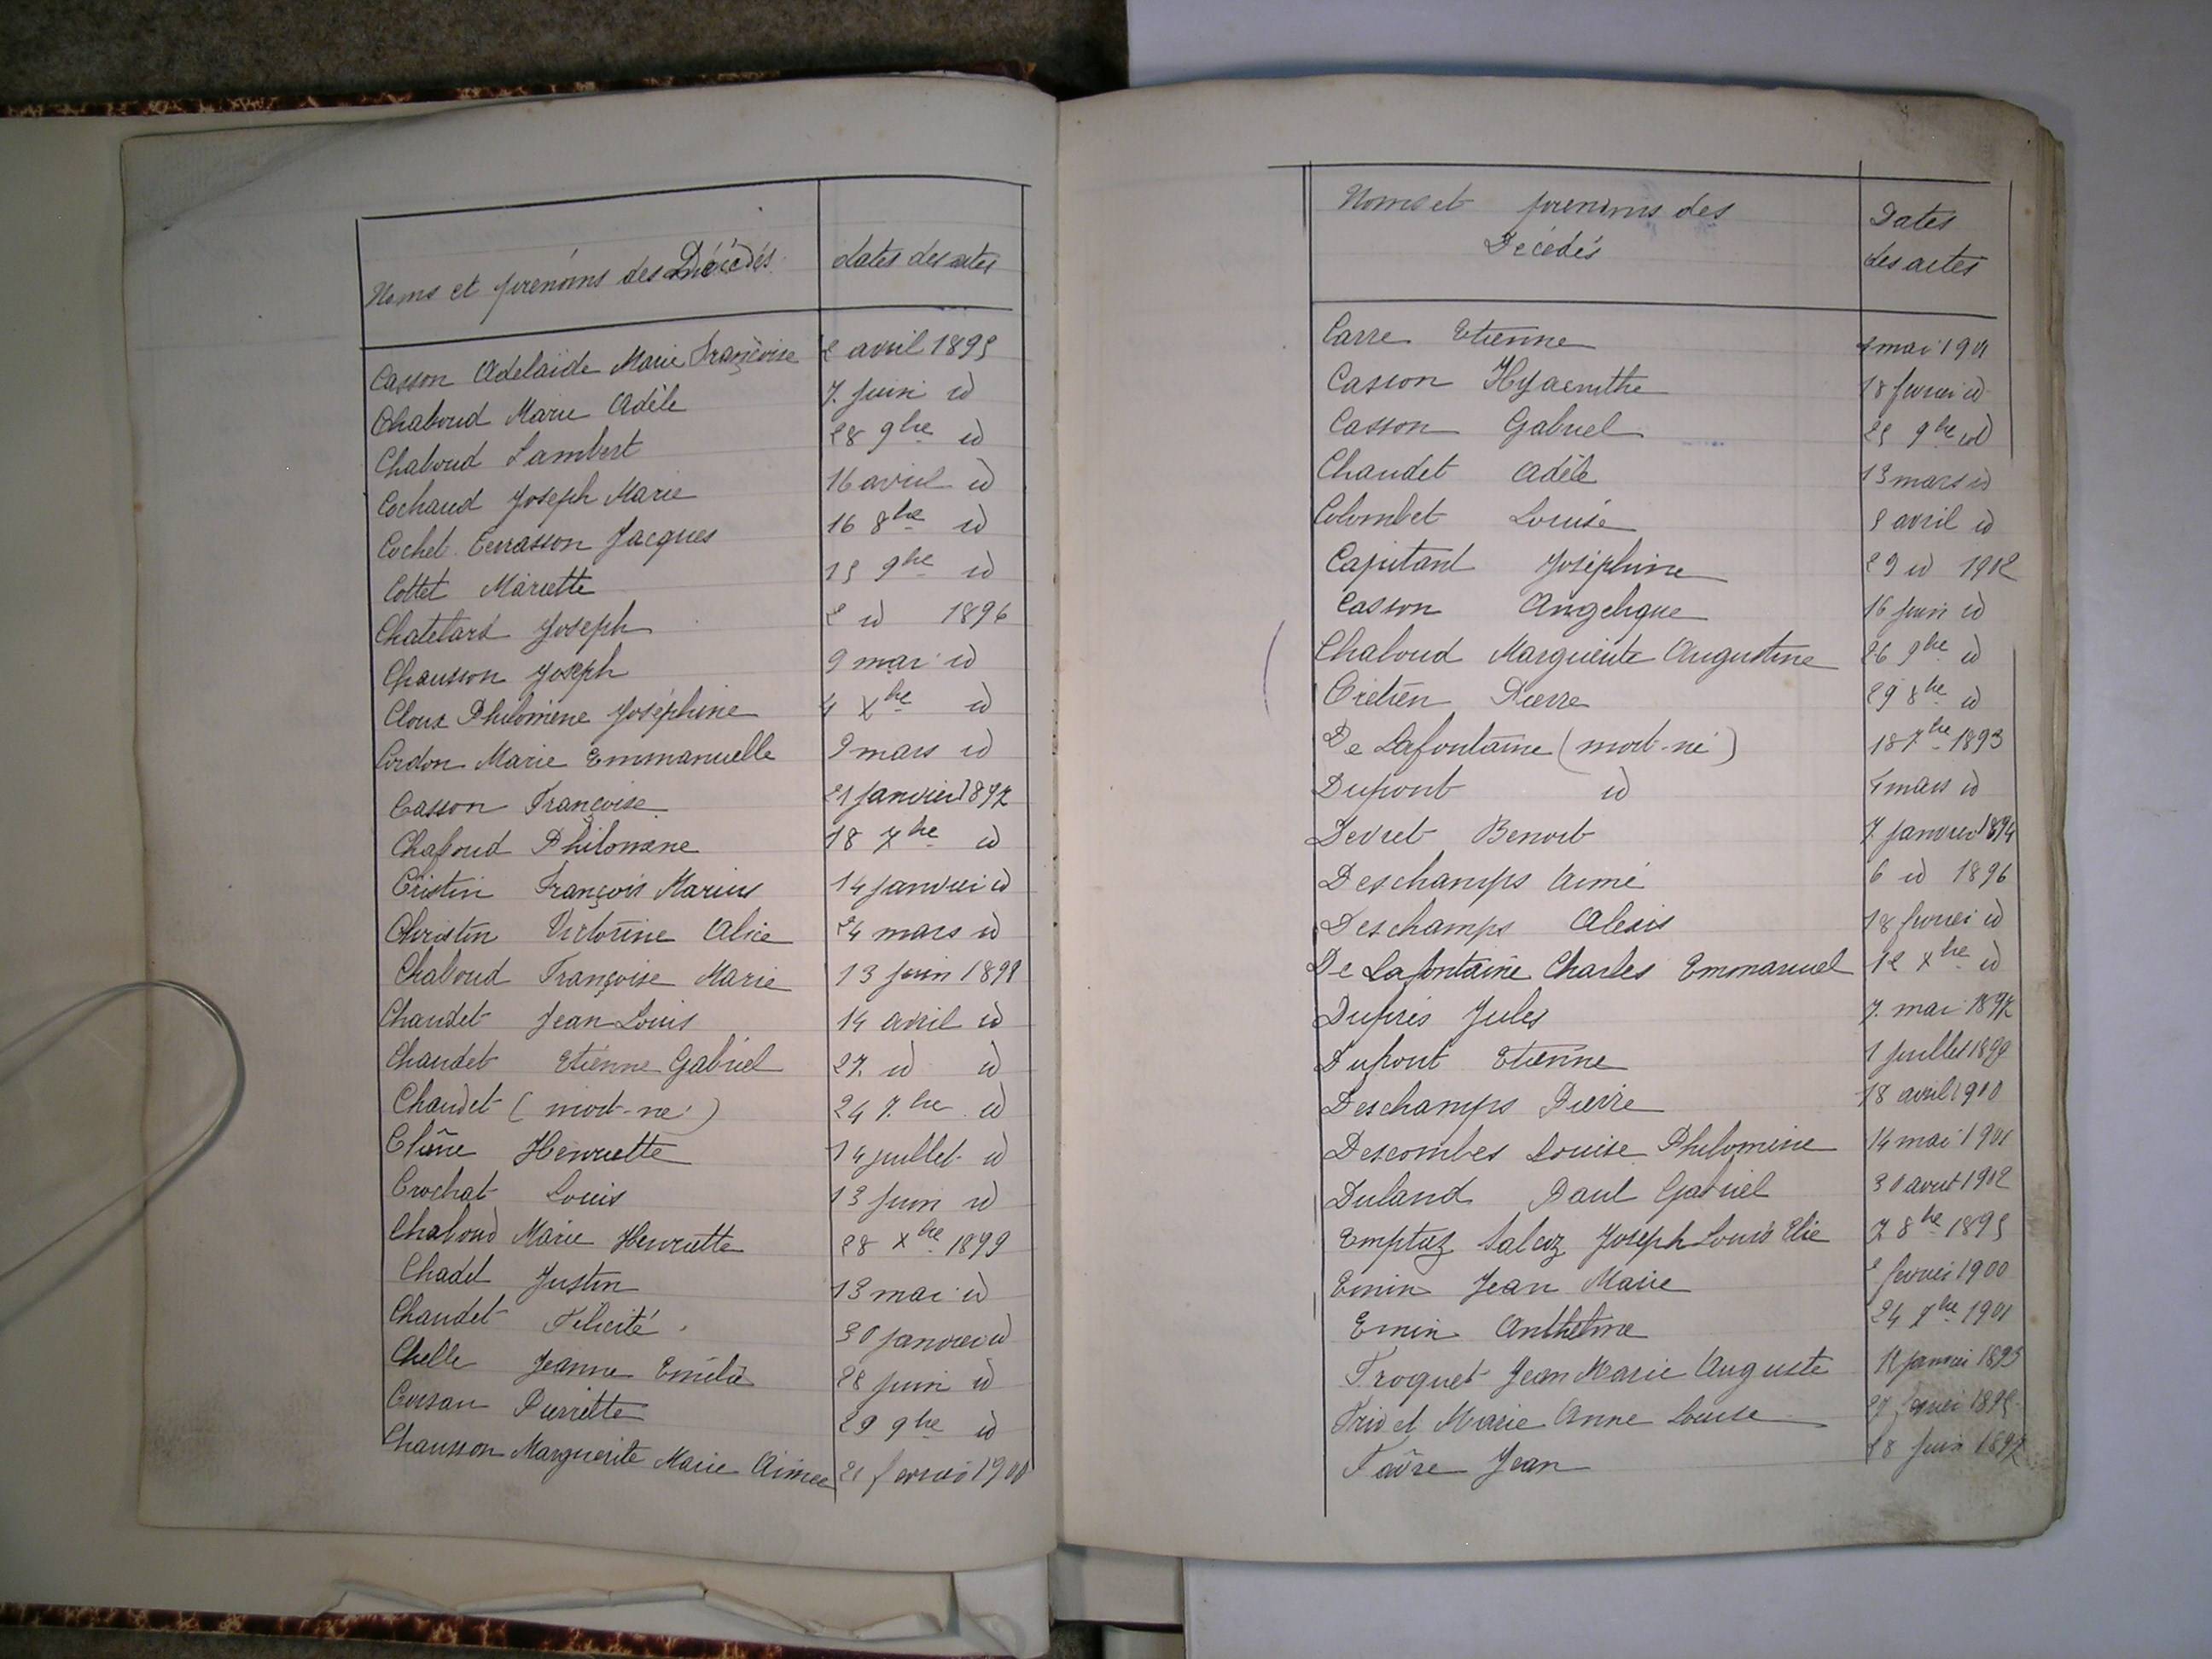 Noms et prénoms des Décédés
dates des actes
Casson Adelaïde Marie Françoise 2 avril 1895
Chaboud Marie Adèle 7 Juin id
Chaboud Lambert 28 9bre id
Cochaud Joseph Marie 16 avril id
Cochet Terrasson Jacques 16 8bre id
Cottet Mariette 15 9bre id
Chatelard Joseph 2 id 1896
Chausson Joseph 9 mai id
Cloux Philomène Joséphine 4 Xbre id
Cordon Marie Emmanuelle 9 mars id
Casson Françoise 21 Janvier 1897
Chaboud Philomène 18 7bre id
Cristin François Marius 14 Janvier id
Christin Victorine Alice 24 mars id
Chaboud Françoise Marie 13 Juin 1898
Chaudet Jean Louis 14 avril id
Chaudet Etienne Gabriel 27 id id
Chaudet (mort-né) 24 7bre id
Henriette 14 juillet id
Crochat Louis 13 Juin id
Chaboud Marie Henriette 28 Xbre 1899
Chadel Justin 13 mai id
Chaudet Félicité 30 Janvier id
Chelle Jeanne Emélie 28 juin id
Cursan Pierrette 29 9bre id
Chausson Marguerite Marie Aimée 21 fevrier 1900
Noms et prenoms des
Décédés
Dates
des actes
Carre Etienne mai 1901
Casson Hyacinthe 18 fevrier id
Casson Gabriel 25 9bre id
Chaudet Adèle 13 mars id
Colombet Louise avril id
Capitant Joséphine 29 id 1902
Casson Angelique 16 Juin id
Chaboud Marguerite Augustine 26 9bre id
Crétien Pierre 29 8bre id
De Lafontaine (mort-né) 18 7bre 1893
Dupont id 4 mars id
Devret Benoit 7 Janvier 1894
Deschamps Aimé 6 id 1896
Deschamps Alexis 18 fevrier id
De Lafontaine Charles Emmanuel 12 Xbre id
Duprés Jules 7 mai 1897
Dupont Etienne 1 Juillet 1899
Deschamps Pierre 18 avril 1900
Descombes Louise Philomène 14 mai 1901
Duland Paul Gabriel 30 aout 1902
Emptaz Salcoz Joseph Louis Elie 7 8bre 1895
Emin Jean Marie 2 fevrier 1900
Emin Anthelme 24 1901
Froquet Jean Marie Auguste Janvier 1893
Frivet Marie Anne Louise 1895
Favre Jean 18 Juin 1897